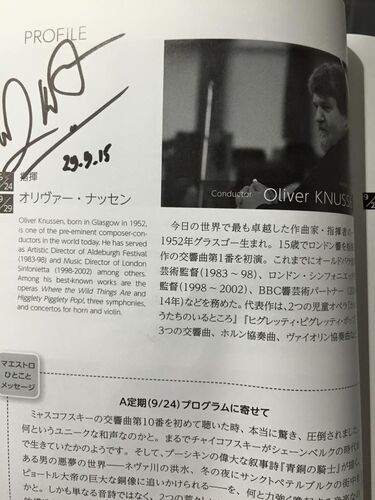 PROFILE
29.9.15
24
29
指揮
オリヴァー・ナッセン
Conductor Oliver KNUSSE
Oliver Knussen, born in Glasgow in 1952,
is one of the pre-eminent composer-con-
ductors in the world today. He has served
as Artistic Director of Aldeburgh Festival
(1983-98) and Music Director of London
Sinfonietta (1998-2002) among others.
Among his best-known works are the
operas Where the Wild Things Are and
Higglety Pigglety Pop!, three symphonies,
and concertos for horn and violin.
今日の世界で最も卓越した作曲家・指揮者の
1952年グラスゴー生まれ。15歳でロンドン響を指
作の交響曲第1番を初演。これまでにオールドバラ
芸術監督(1983~98)、ロンドン・シンフォニエッ
監督(1998~2002)、BBC響芸術パートナー(20
14年)などを務めた。代表作は、2つの児童オペラ「か
うたちのいるところ」「ヒグレッティ・ピグレッティ・ポ
3つの交響曲、ホルン協奏曲、ヴァイオリン協奏曲な
マエストロ
ひとこと
メッセージ
A定期(9/24)プログラムに寄せて
ミャスコフスキーの交響曲第10番を初めて聴いた時、本当に驚き、圧倒されました
何というユニークな和声なのかと。まるでチャイコフスキーがシェーンベルクの時代
で生きていたかのようです。そして、プーシキンの偉大な叙事詩『青銅の騎士』が描く
ある男の悪夢の世界――ネヴァ川の洪水、冬の夜にサンクトペテルブルクの街中を
ピョートル大帝の巨大な銅像に追いかけられる――を、何と力強く
かと。しかも単なる音詩ではなく、2つの